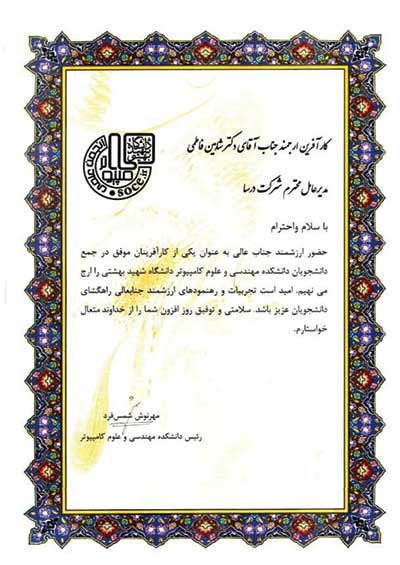 کارآفرین ارجمند جناب آقای دکتر شاهین فاطمی
مدیرعامل محترم شرکت درسا
با سلام واحترام
حضور ارزشمند جناب عالی به عنوان یکی از کارآفرینان موفق در جمع
دانشجویان دانشکده مهندسی و علوم کامپیوتر دانشگاه شهید بهشتی را ارج
می نهیم. امید است تجربیات و رهنمودهای ارزشمند جنابعالی راهگشای
دانشجویان عزیز باشد. سلامتی و توفیق روز افزون شما را از خداوند متعال
خواستارم.
مهرنوش شمس‌فرد
رئیس دانشکده مهندسی و علوم کامپیوتر